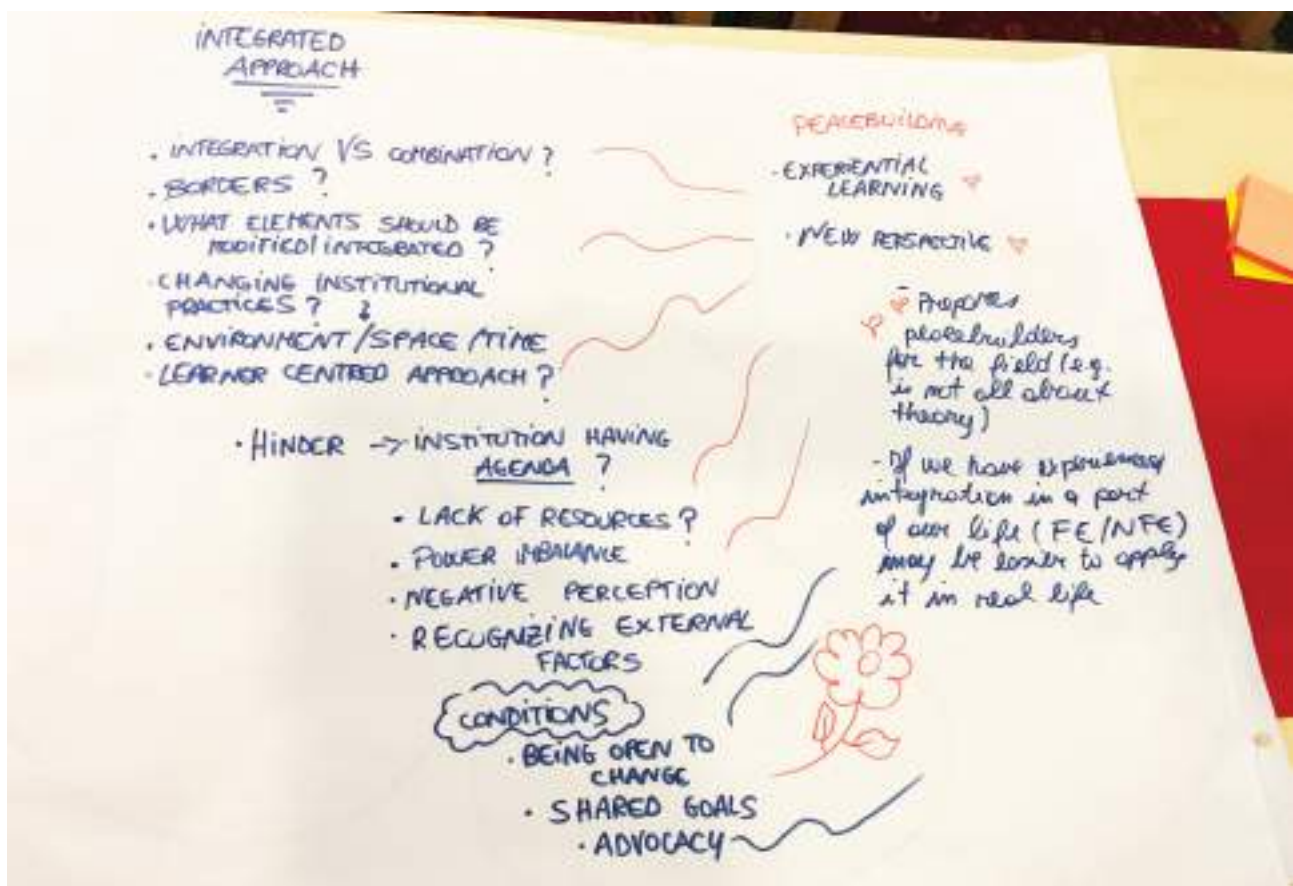 INTEGRATED
APPROACH
. INTEGRATION VS COMBINATION ?
. BORDERS ?
· WHAT ELEMENTS SHOULD BE
MODIFIED/INTEGRATED ?
· CHANGING INSTITUTIONAL
PRACTICES ?
. ENVIRONMENT/SPACE/TIME
· LEARNER CENTRED APPROACH ?
· HINDER -> INSTITUTION HAVING
AGENDA ?
• LACK OF RESOURCES ?
• POWER IMBALANCE
· NEGATIVE PERCEPTION
· RECOGNIZING EXTERNAL
FACTORS
CONDITIONS
· BEING OPEN TO
CHANGE
· SHARED GOALS
· ADVOCACY
PEACEBUILDING
· EXPERIENTIAL
LEARNING
· NEW PERSPECTIVE
- Prepares
peacebuilders
for the field (e.g.
is not all about
theory)
- If we have experienced
integration in a part
of our life (FE/NFE)
may be easier to apply
it in real life